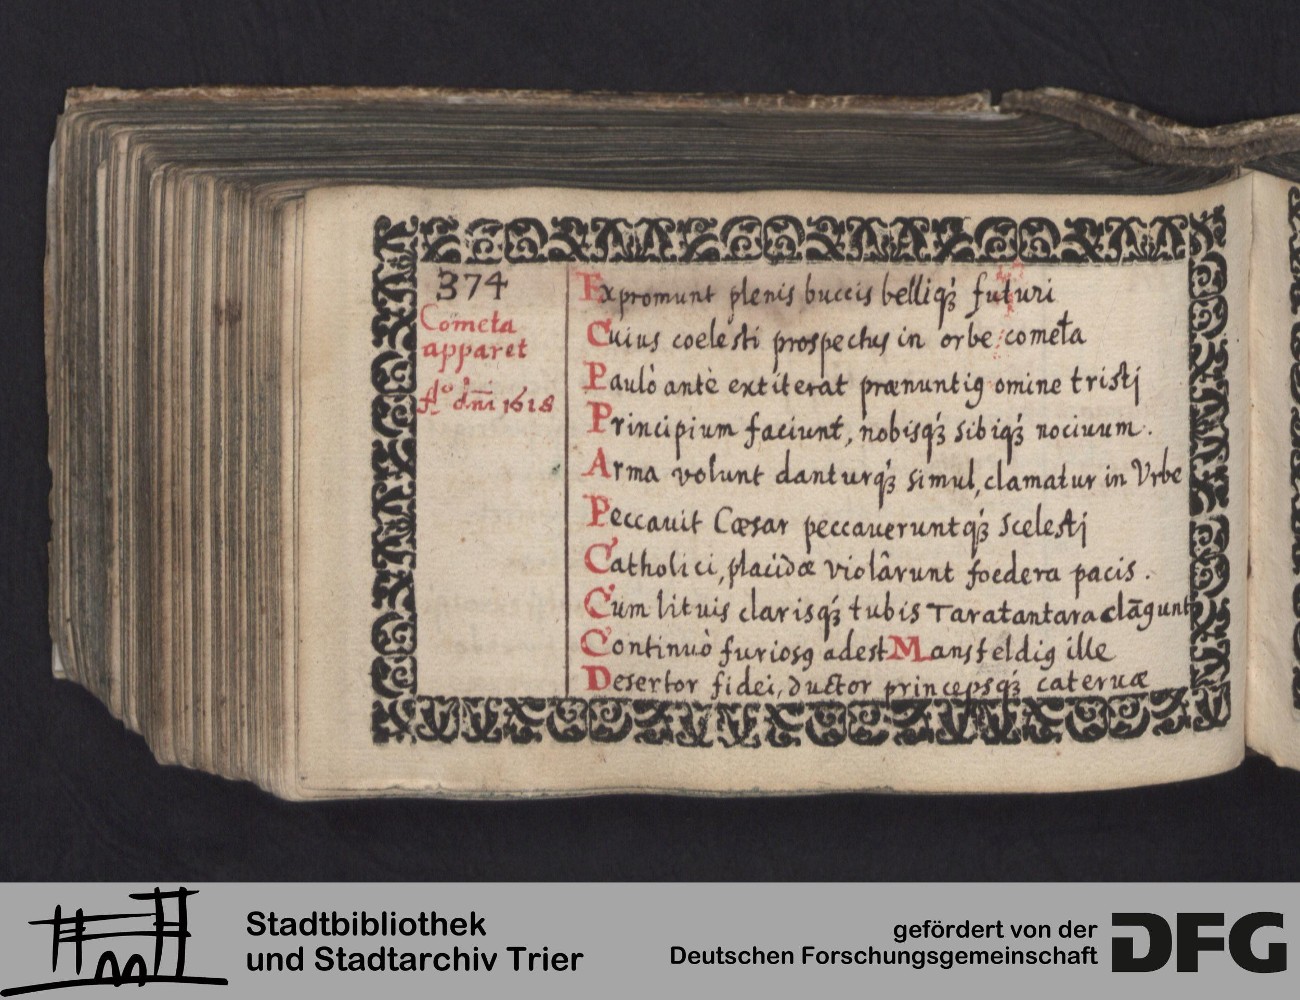 374
Cometa
apparet
Aº dñi 1618
Expromunt plenis buccis belliqꝫ futuri
Cuius coelesti prospectus in orbe cometa
Paulò antè extiterat prænuntiꝰ omine tristj
Principium faciunt, nobisqꝫ sibiqꝫ nociuum.
Arma volunt danturqꝫ simul, clamatur in Vrbe
Peccauit Cæsar peccaueruntqꝫ scelestj
Catholici, placidæ violârunt foedera pacis.
Cum lituis clarisqꝫ tubis Taratantara clāgunt
Continuò furiosꝰ adest Mansfeldiꝰ ille
Desertor fidei, ductor princepsqꝫ cateruæ
Stadtbibliothek
und Stadtarchiv Trier
gefördert von der
Deutschen Forschungsgemeinschaft
DFG